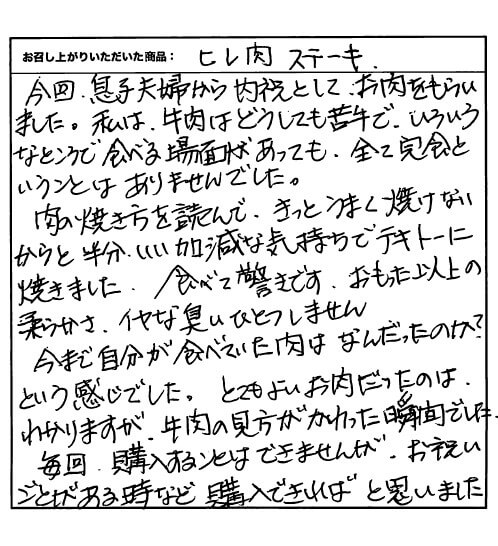 お召し上がりいただいた商品： ヒレ肉 ステーキ.
今回、息子夫婦から内祝として、お肉をもらい
ました。私は、牛肉はどうしても苦手で、いろいろ
なところで食べる場面があっても、全て完食と
いうことはありませんでした。
肉の焼き方を読んで、きっとうまく焼けない
からと半分、いい加減な気持ちでテキトーに
焼きました、食べて驚きです、おもった以上の
柔らかさ、イヤな臭いひとつしません
今まで自分が食べていた肉はなんだったのか?
という感じでした。とてもよいお肉だったのは、
わかりますが、牛肉の見方がかわった瞬間でした.
毎回、購入することはできませんが、お祝い
ごとがある時など購入できればと思いました